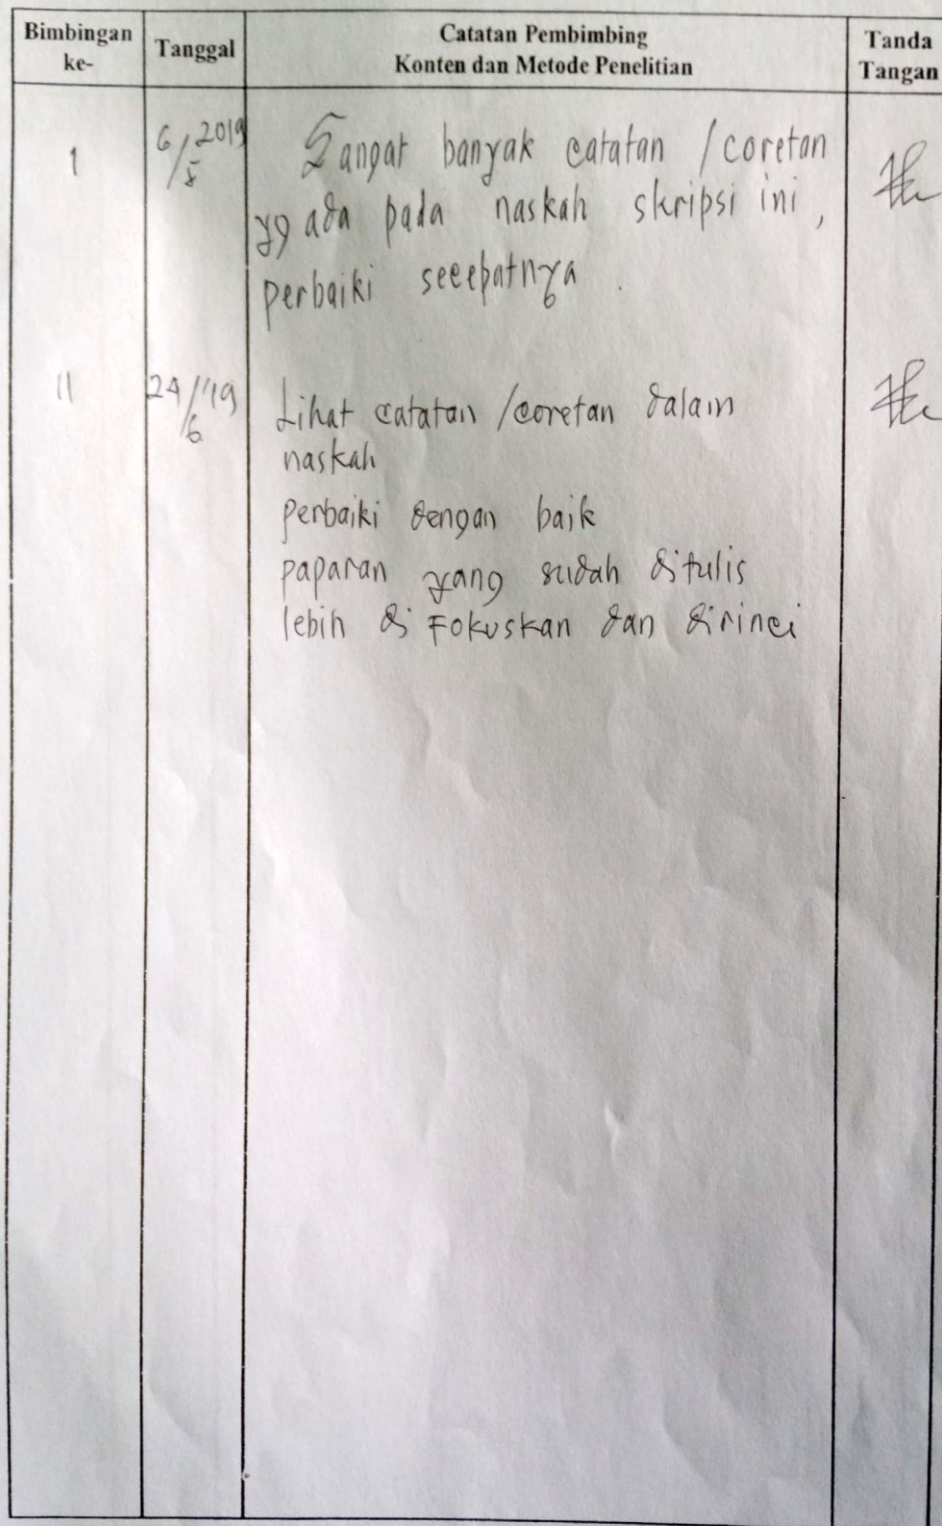 Bimbingan ke-
Tanggal
Catatan Pembimbing
Konten dan Metode Penelitian
Tanda Tangan
1
6/5 2019
Sangat banyak catatan / coretan
yg ada pada naskah skripsi ini,
perbaiki secepatnya.
II
24/6 '19
Lihat catatan / coretan dalam
naskah
Perbaiki dengan baik
paparan yang sudah ditulis
lebih di Fokuskan dan dirinci